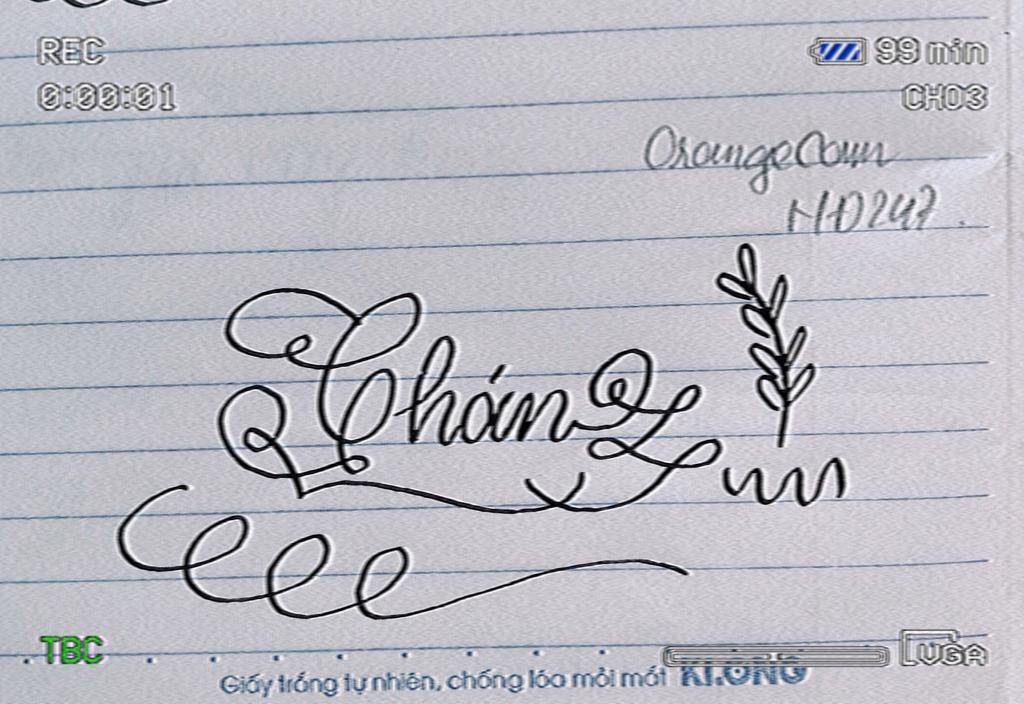 REC
99 min
0:00:01
CH03
OrangeCam
HD247.
Chán
TBC
VGA
Giấy trắng tự nhiên, chống lóa mỏi mắt KLONG